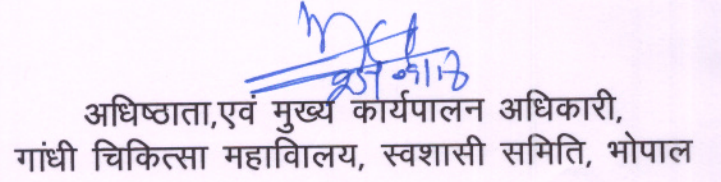 अधिष्ठाता,एवं मुख्य कार्यपालन अधिकारी,
गांधी चिकित्सा महाविालय, स्वशासी समिति, भोपाल